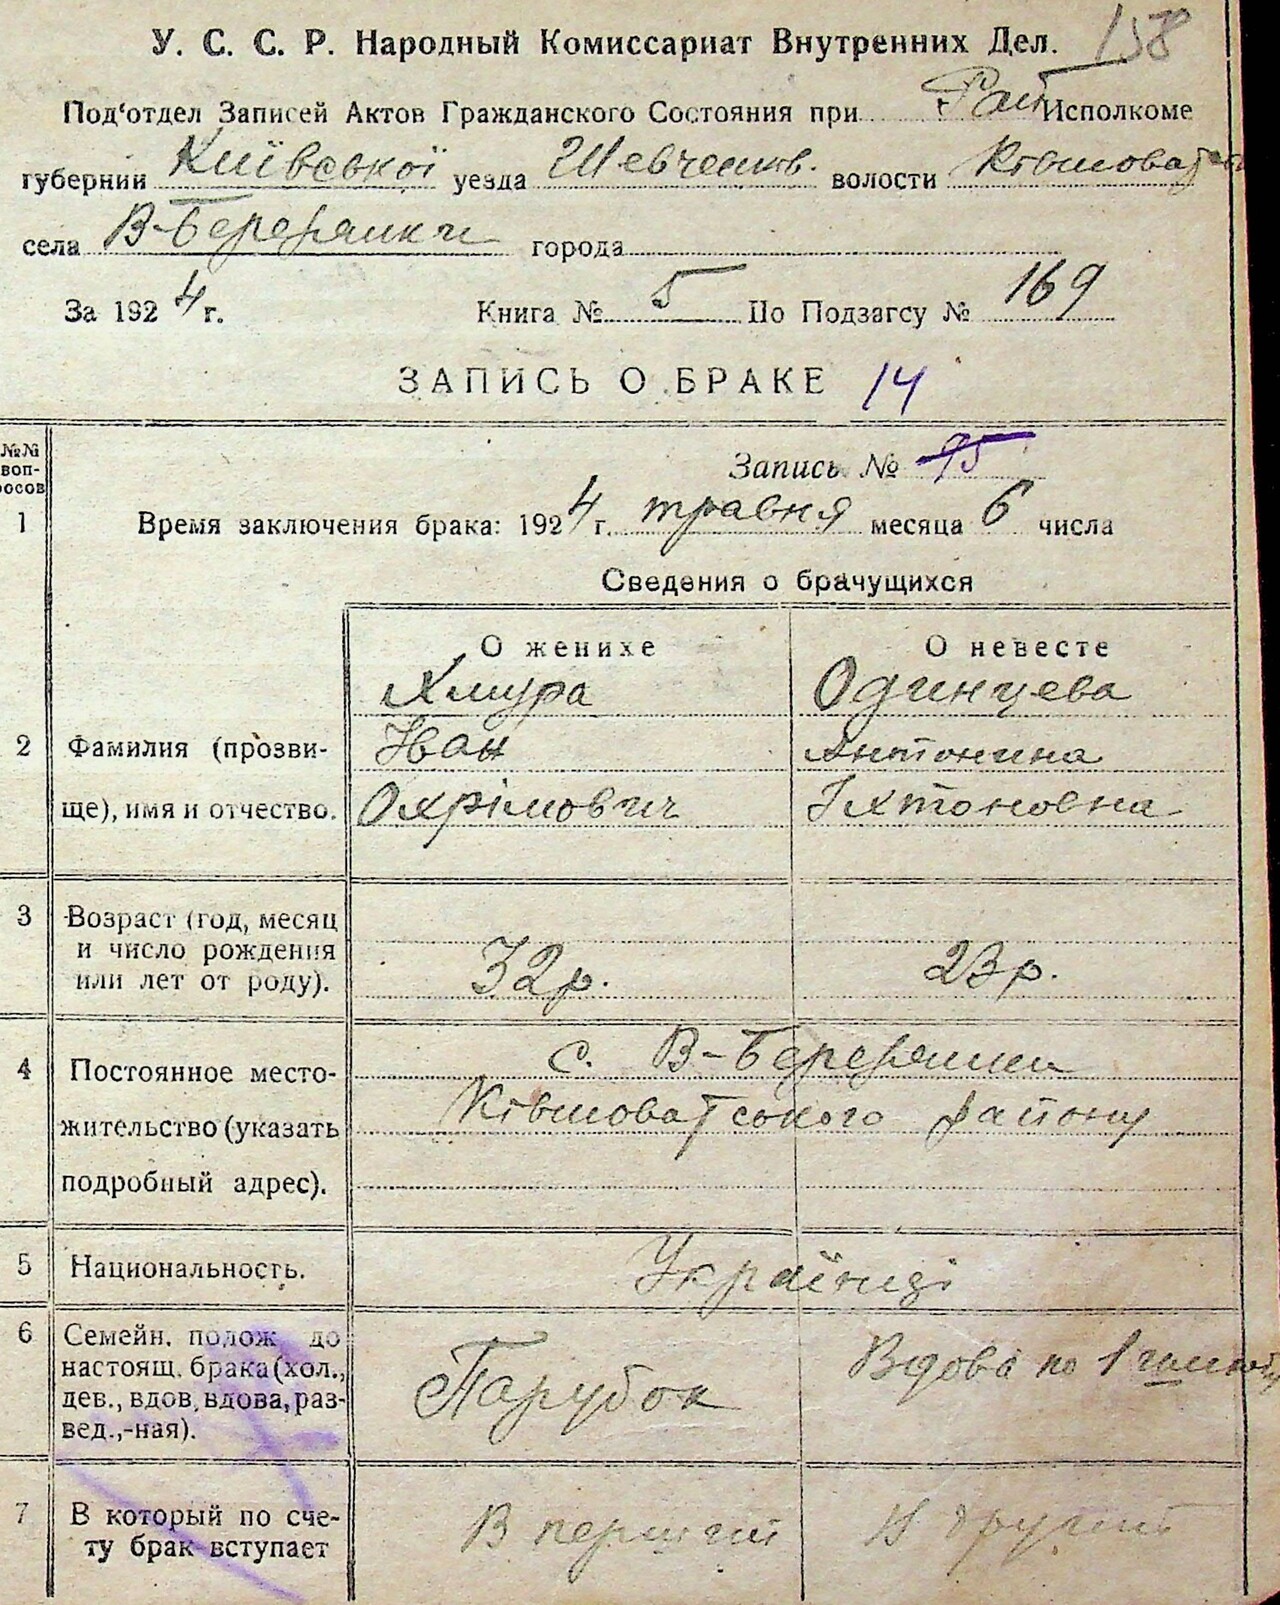 158
У. С. С. Р. Народный Комиссариат Внутренних Дел.
Под'отдел Записей Актов Гражданского Состояния при Рай Исполкоме
губернии Київської уезда Шевченків. волости Ківшоватськ
села В-Березянки города
За 1924 г. Книга № 5 По Подзагсу № 169
ЗАПИСЬ О БРАКЕ 14
№№ вопросов
Запись № 95
1 Время заключения брака: 1924 г. травня месяца 6 числа
Сведения о брачущихся
О женихе О невесте
Хмура Одинцева
2 Фамилия (прозви- Іван Антонина
ще), имя и отчество. Охрімович
3 Возраст (год, месяц
и число рождения
или лет от роду). 32 р. 23 р.
4 Постоянное место- с. В-Березянки
жительство (указать Ківшоватського району
подробный адрес).
5 Национальность. Українці
6 Семейн. полож до
настоящ. брака (хол., Парубок Вдова по 1
дев., вдов, вдова, раз-
вед.,-ная).
7 В который по сче- В перший В другий
ту брак вступает